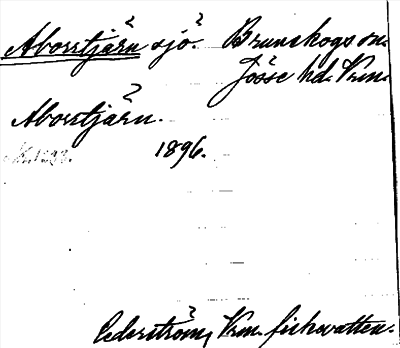 Abortjärn sjö. Brunskogs sn.
Jösse hd. Vrm.
Abortjärn.
1896.
Cederström, Vrm. fiskvatten.